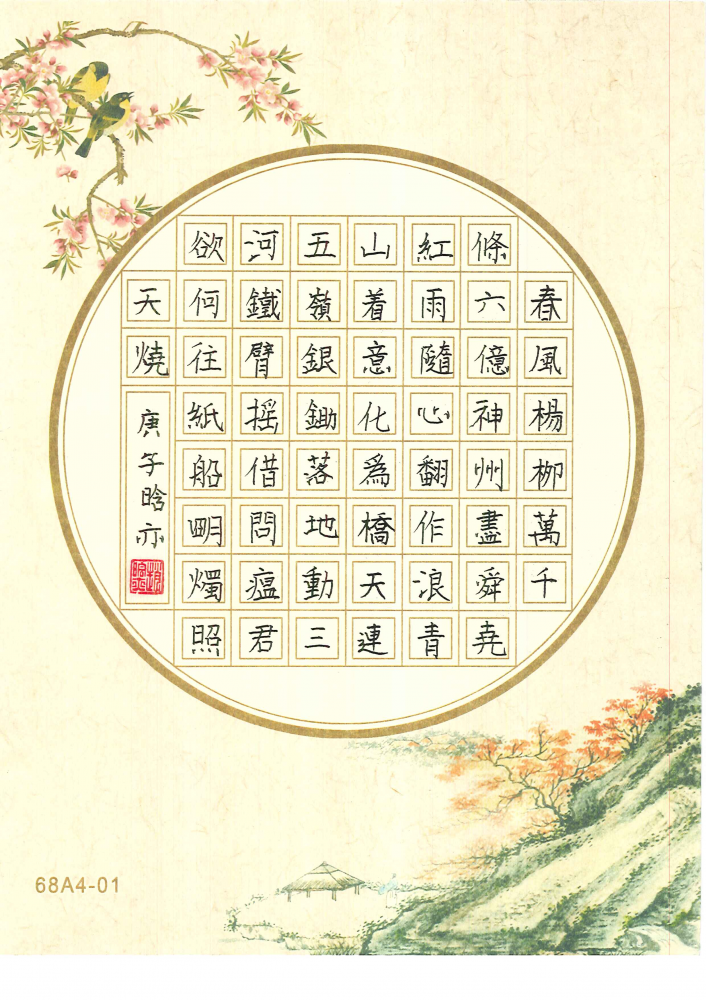 春風楊柳萬千
條六億神州盡舜堯
紅雨隨心翻作浪青
山着意化爲橋天連
五嶺銀鋤落地動三
河鐵臂摇借問瘟君
欲何往紙船明燭照
天燒
庚子晗亦
68A4-01